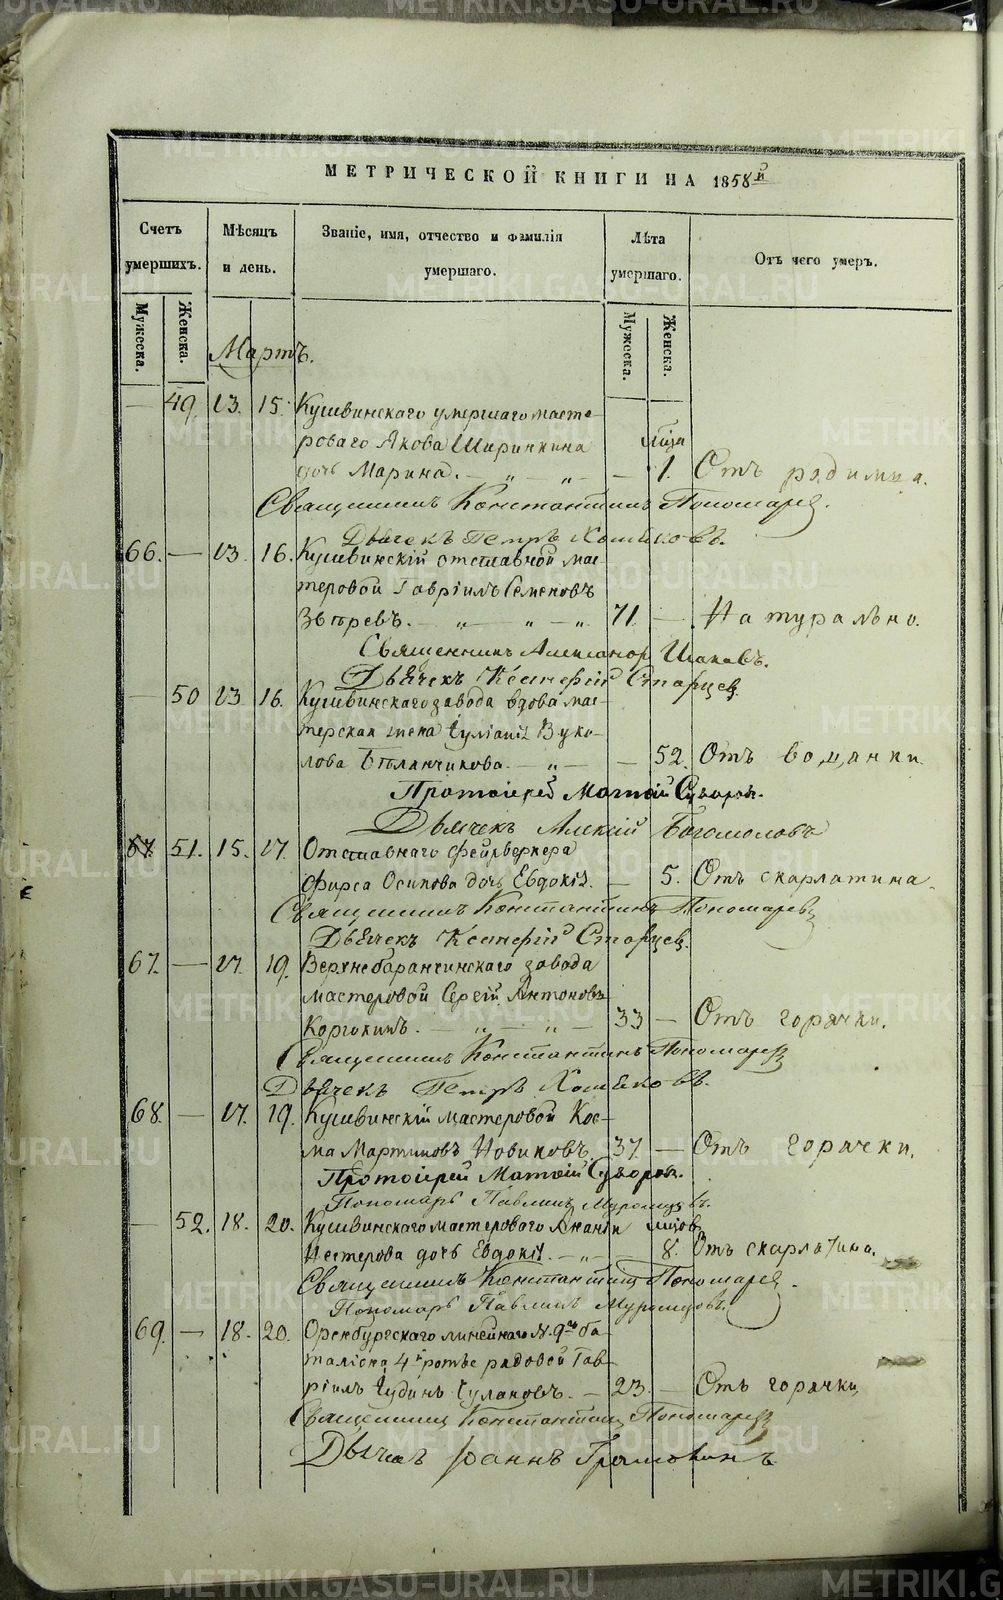 МЕТРИЧЕСКОЙ КНИГИ НА 1858й
Счетъ умершихъ.
Мѣсяцъ и день.
Званіе, имя, отчество и фамилія умершаго.
Лѣта умершаго.
Отъ чего умеръ.
Мужеска. Женска.
Мужеска. Женска.
Мартъ.
— 49. 13. 15. Кушвинскаго умершаго масте-
роваго Якова Ширинкина
дочь Марина. — „ — „ — 1. Отъ родимца.
Священникъ Константинъ Пономарев.
Дьячекъ Петръ Хомяковъ.
66. — 13. 16. Кушвинскій отставной мас-
теровой Гавріилъ Семеновъ
Звѣревъ. — „ — „ — „ 71. — Натурально.
Священникъ Александр Ишаковъ.
Дьячекъ Ксенефій Старцев.
— 50 13 16. Кушвинскаго завода вдова мас-
терская жена Вуко-
лова — „ — 52. Отъ водянки.
Протоіерей Матѳій Суворов.
Дьячекъ Алексій Богомоловъ
67. 51. 15. 17. Отставнаго фейрверкера
Фирса Осипова дочь Евдокія. — 5. Отъ скарлатина.
Священникъ Константинъ Пономарев
Дьячекъ Ксенефій Старцев.
67. — 17. 19. Верхнебаранчинскаго завода
мастеровой Сергій Антоновъ
— „ — „ — 33 — Отъ горячки.
Священникъ Константинъ Пономарев
Дьячекъ Петръ Хомяковъ.
68. — 17. 19. Кушвинскій мастеровой Кос-
ма Мартиновъ Новиковъ. 37. — Отъ горячки.
Протоіерей Матѳій Суворов.
Пономарь Павлинъ Муромцовъ.
— 52. 18. 20. Кушвинскаго мастероваго Ананіи мцов
Нестерова дочь Евдокія. — „ — 8. Отъ скарлатина.
Священникъ Константинъ Пономарев.
Пономарь Павлинъ Муромцовъ.
69. — 18. 20. Оренбургскаго линейнаго N. 9го ба-
таліона 4й роты рядовой Гав-
ріилъ — 23. — Отъ горячки
Священникъ Константинъ Пономарев
Дьячекъ Іоаннъ
METRIKI.GASO-URAL.RU